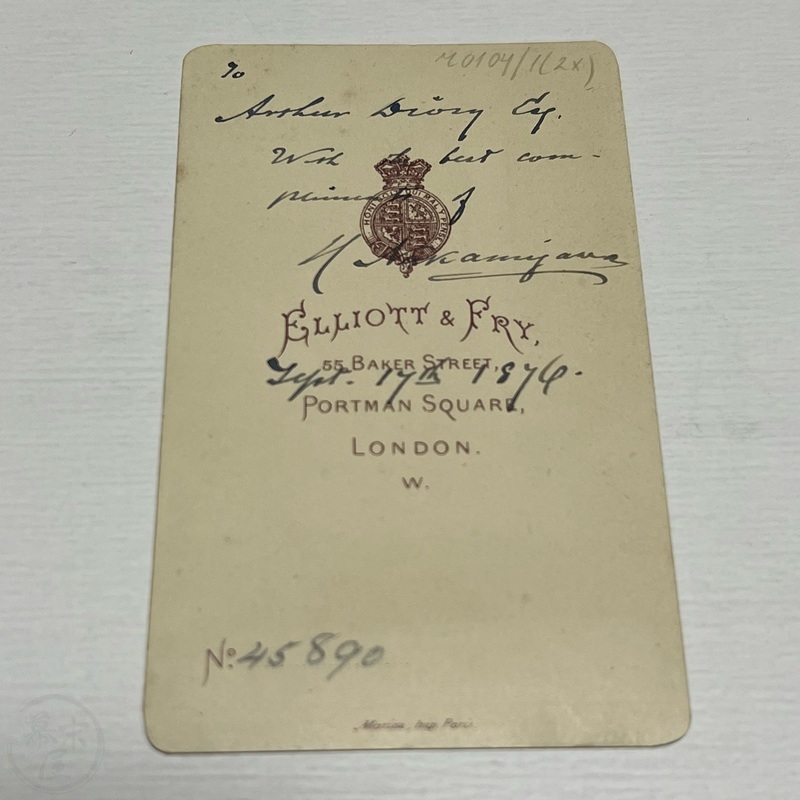 To
M0104/1(2x)
Arthur Diósy Esq.
With best com-
pliments of
H Nakamigawa
HONI SOIT QUI MAL Y PENSE
ELLIOTT & FRY,
55 BAKER STREET,
Sept. 17th 1876.
PORTMAN SQUARE,
LONDON.
W.
No. 45890
Imp. Paris.